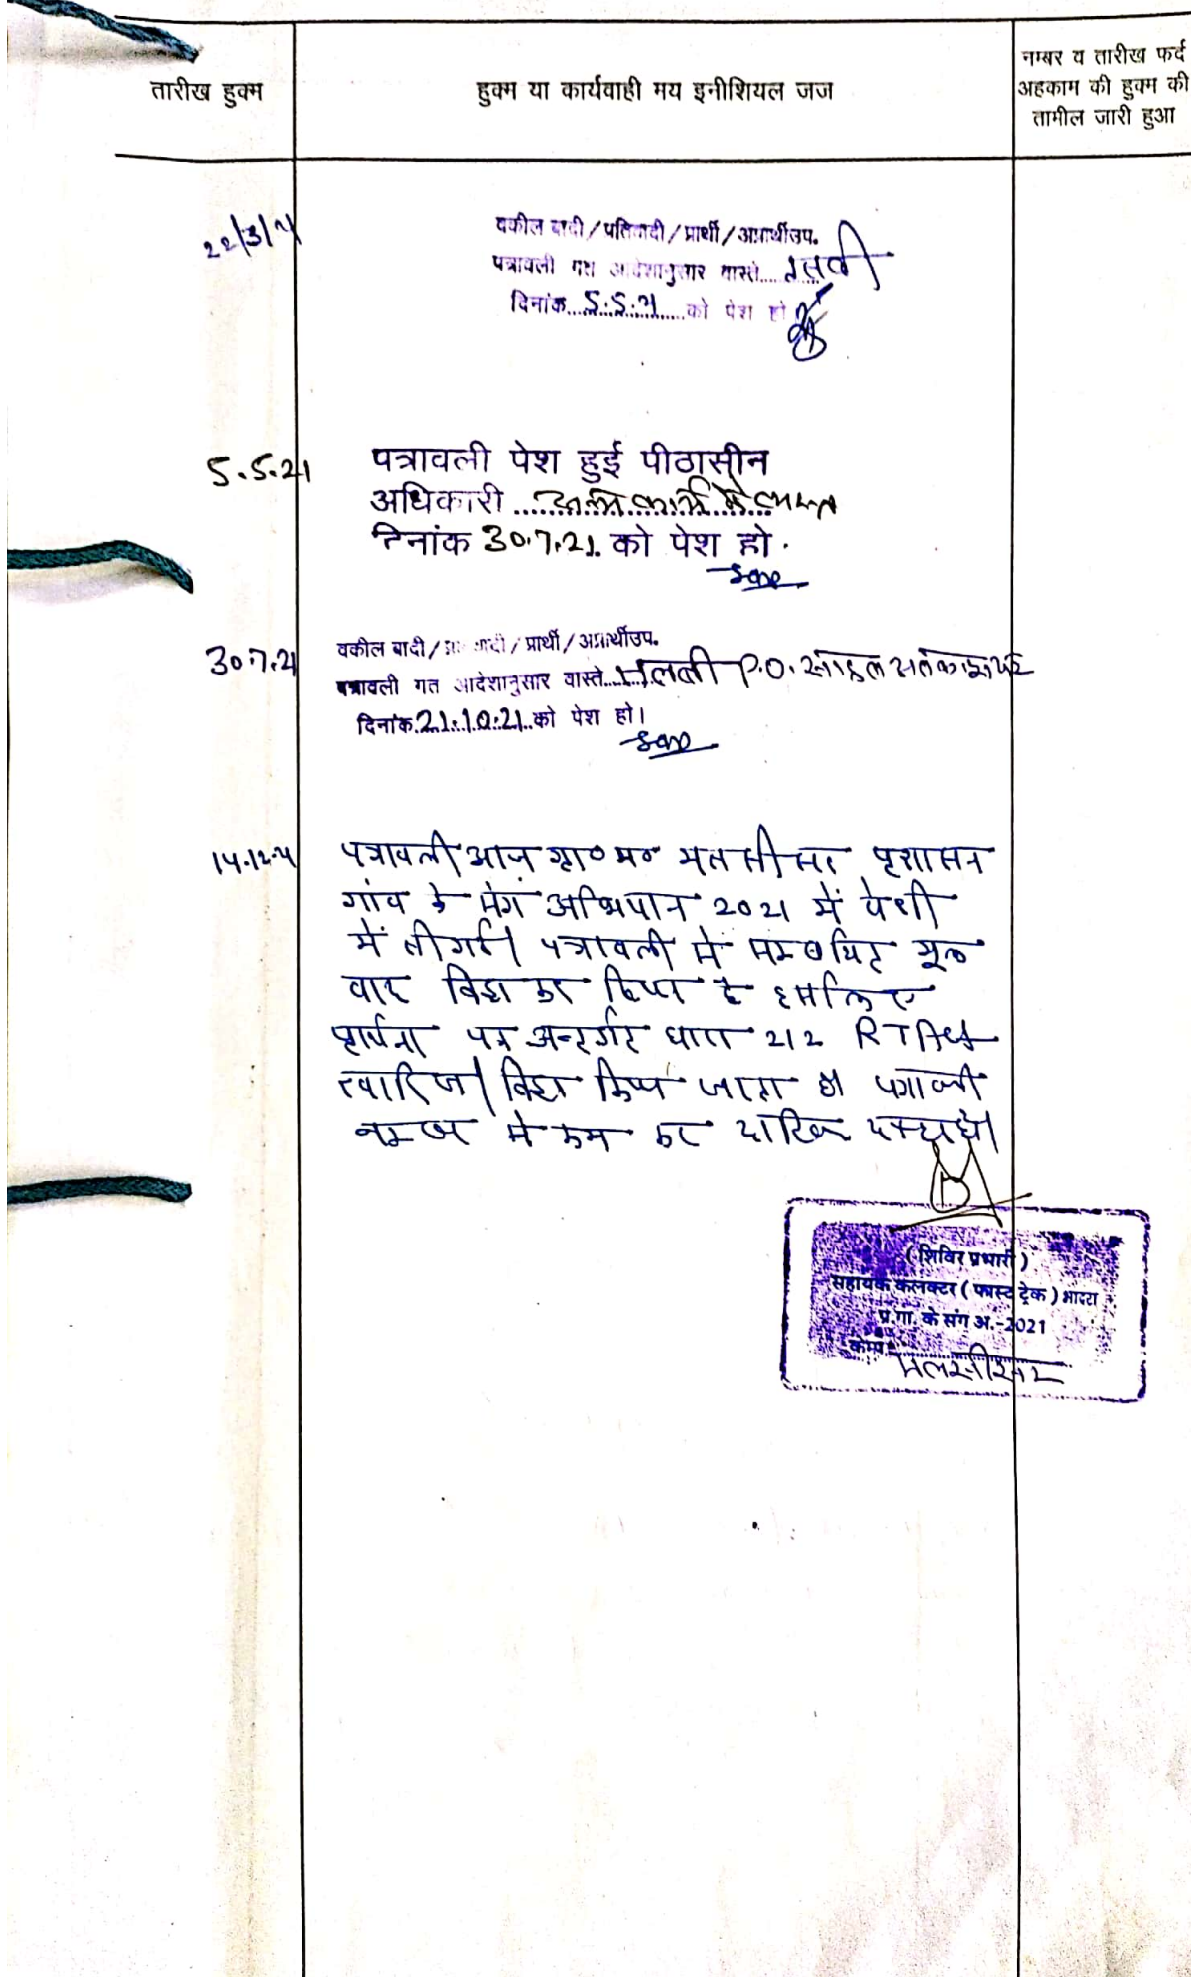 तारीख हुक्म
हुक्म या कार्यवाही मय इनीशियल जज
नम्बर व तारीख फर्द
अहकाम की हुक्म की
तामील जारी हुआ
22/3/21
वकील वादी/प्रतिवादी/प्रार्थी/अप्रार्थीउप.
पत्रावली गत आदेशानुसार वास्ते.... तलवी
दिनांक...5.5.21...को पेश हो
5.5.21
पत्रावली पेश हुई पीठासीन
अधिकारी
दिनांक 30.7.21. को पेश हो.
30.7.21
वकील वादी/प्रार्थी/अप्रार्थीउप.
पत्रावली गत आदेशानुसार वास्ते.... तलबी P.O. साहब
दिनांक.21.10.21..को पेश हो।
14.12.21
पत्रावली आज ग्रा० प० मलसीसर प्रशासन
गांव के संग अभियान 2021 में पेशी
में ली गई। पत्रावली में सम्बंधित मूल
वाद विड्रा कर लिया है इसलिए
प्रार्थना पत्र अन्तर्गत धारा 212 RTAct
खारिज/विड्रा किया जाता है। पत्रावली
नम्बर से कम कर दाखिल दफ्तर हो।
(शिविर प्रभारी)
सहायक कलक्टर (फास्ट ट्रेक) भादरा
प्र.गा. के संग अ.-2021
केम्प मलसीसर